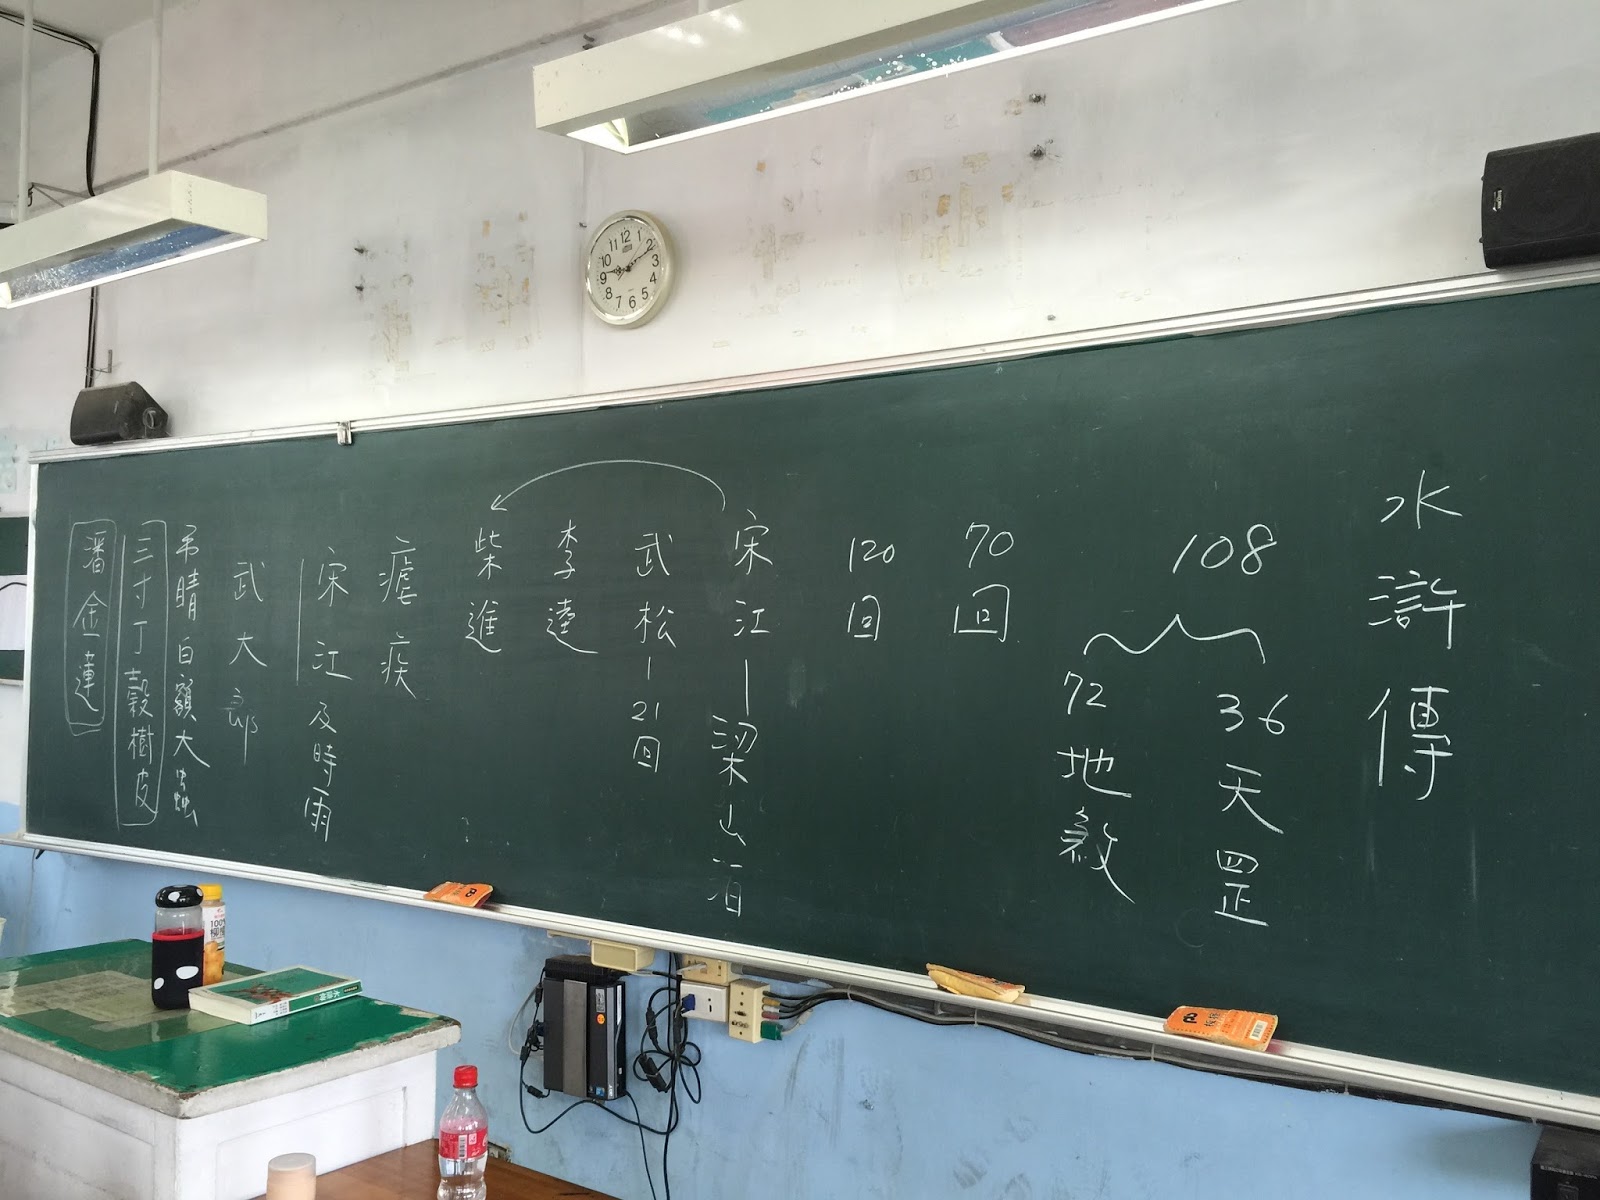 水滸傳
108
36天罡
72地煞
70回
120回
宋江—梁山泊
武松—21回
李逵
柴進
瘧疾
宋江及時雨
武大郎
吊睛白額大蟲
三寸丁穀樹皮
潘金蓮
12 1 2 3 4 5 6 7 8 9 10 11
水滸傳
100%